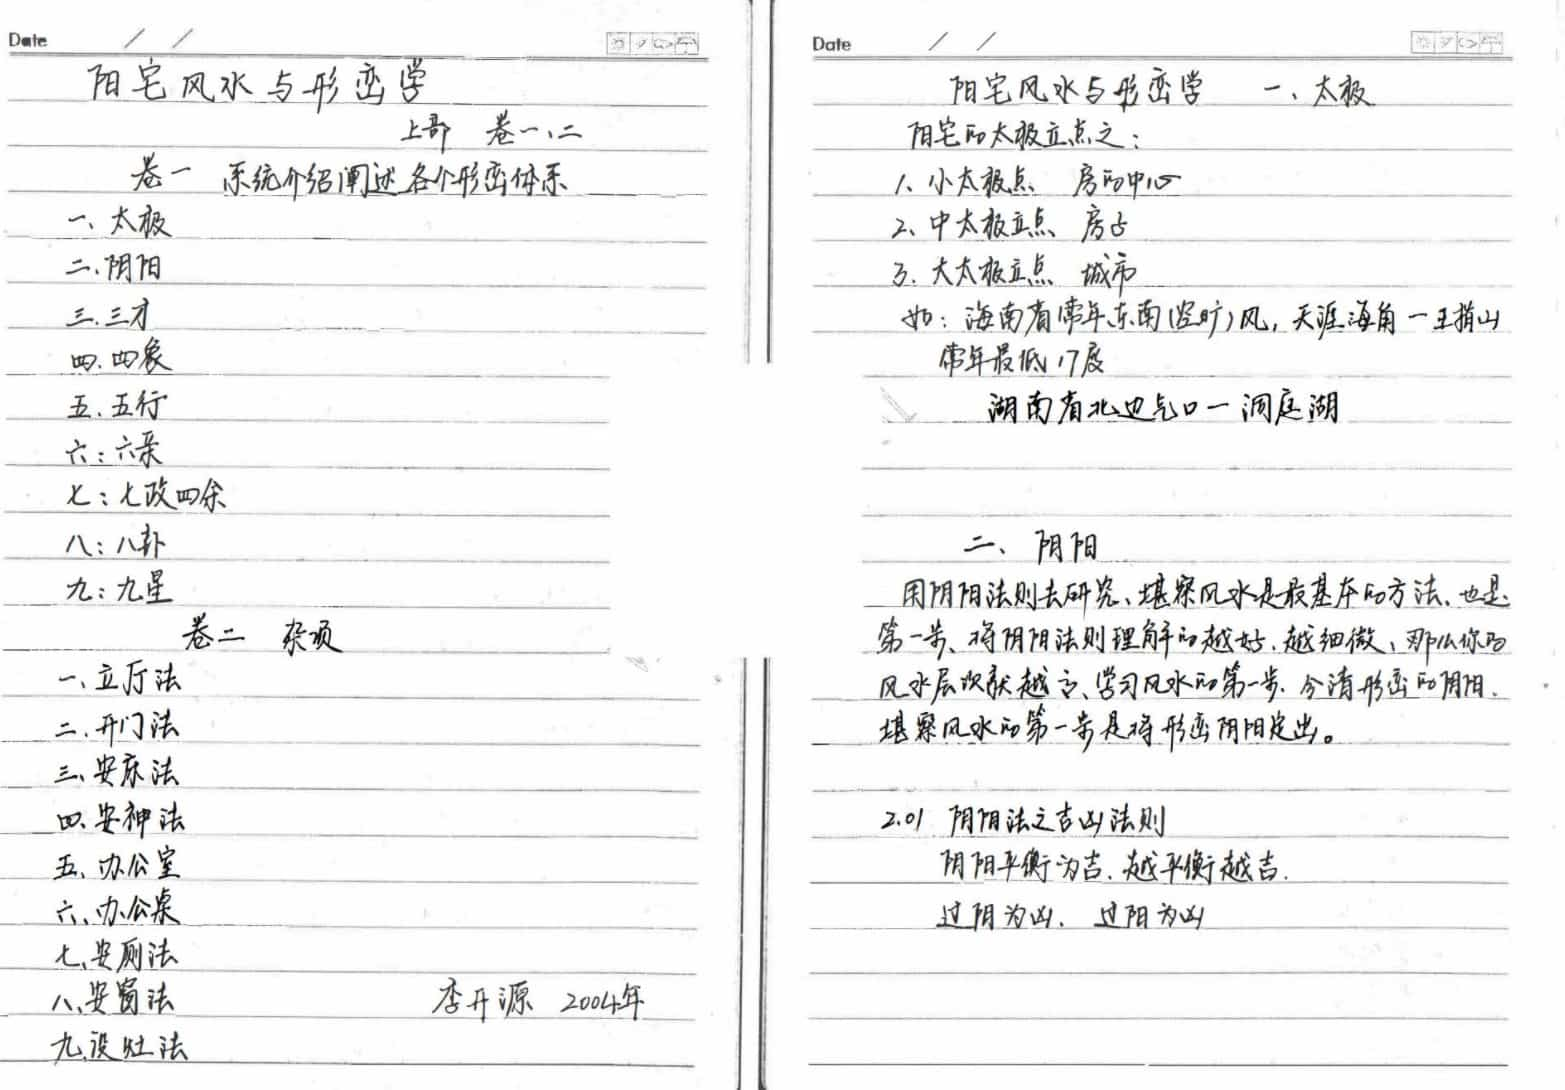 Date / /
阳宅风水与形峦学
上部 卷一、二
卷一 系统介绍阐述各个形峦体系
一、太极
二、阴阳
三、三才
四、四象
五、五行
六:六亲
七:七政四余
八:八卦
九:九星
卷二 杂项
一、立厅法
二、开门法
三、安床法
四、安神法
五、办公室
六、办公桌
七、安厕法
八、安窗法
九、设灶法
李开源 2004年
Date / /
阳宅风水与形峦学 一、太极
阳宅的太极立点之:
1、小太极点 房的中心
2、中太极立点 房占
3、大太极立点 城市
如:海南省常年东南(空旷)风,天涯海角一五指山
常年最低17度
湖南省北边气口一洞庭湖
二、阴阳
用阴阳法则去研究、堪察风水是最基本的方法、也是
第一步、将阴阳法则理解的越好、越细微、那么你的
风水层次就越高、学习风水的第一步、分清形峦的阴阳.
堪察风水的第一步是将形峦阴阳定出。
2.01 阴阳法之吉凶法则
阴阳平衡为吉、越平衡越吉.
过阴为凶. 过阳为凶